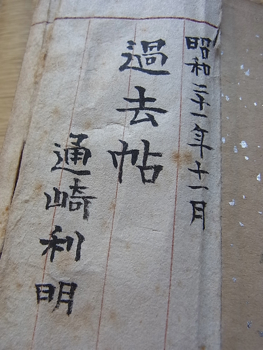 昭和二十一年十一月
過去帖
通崎利明